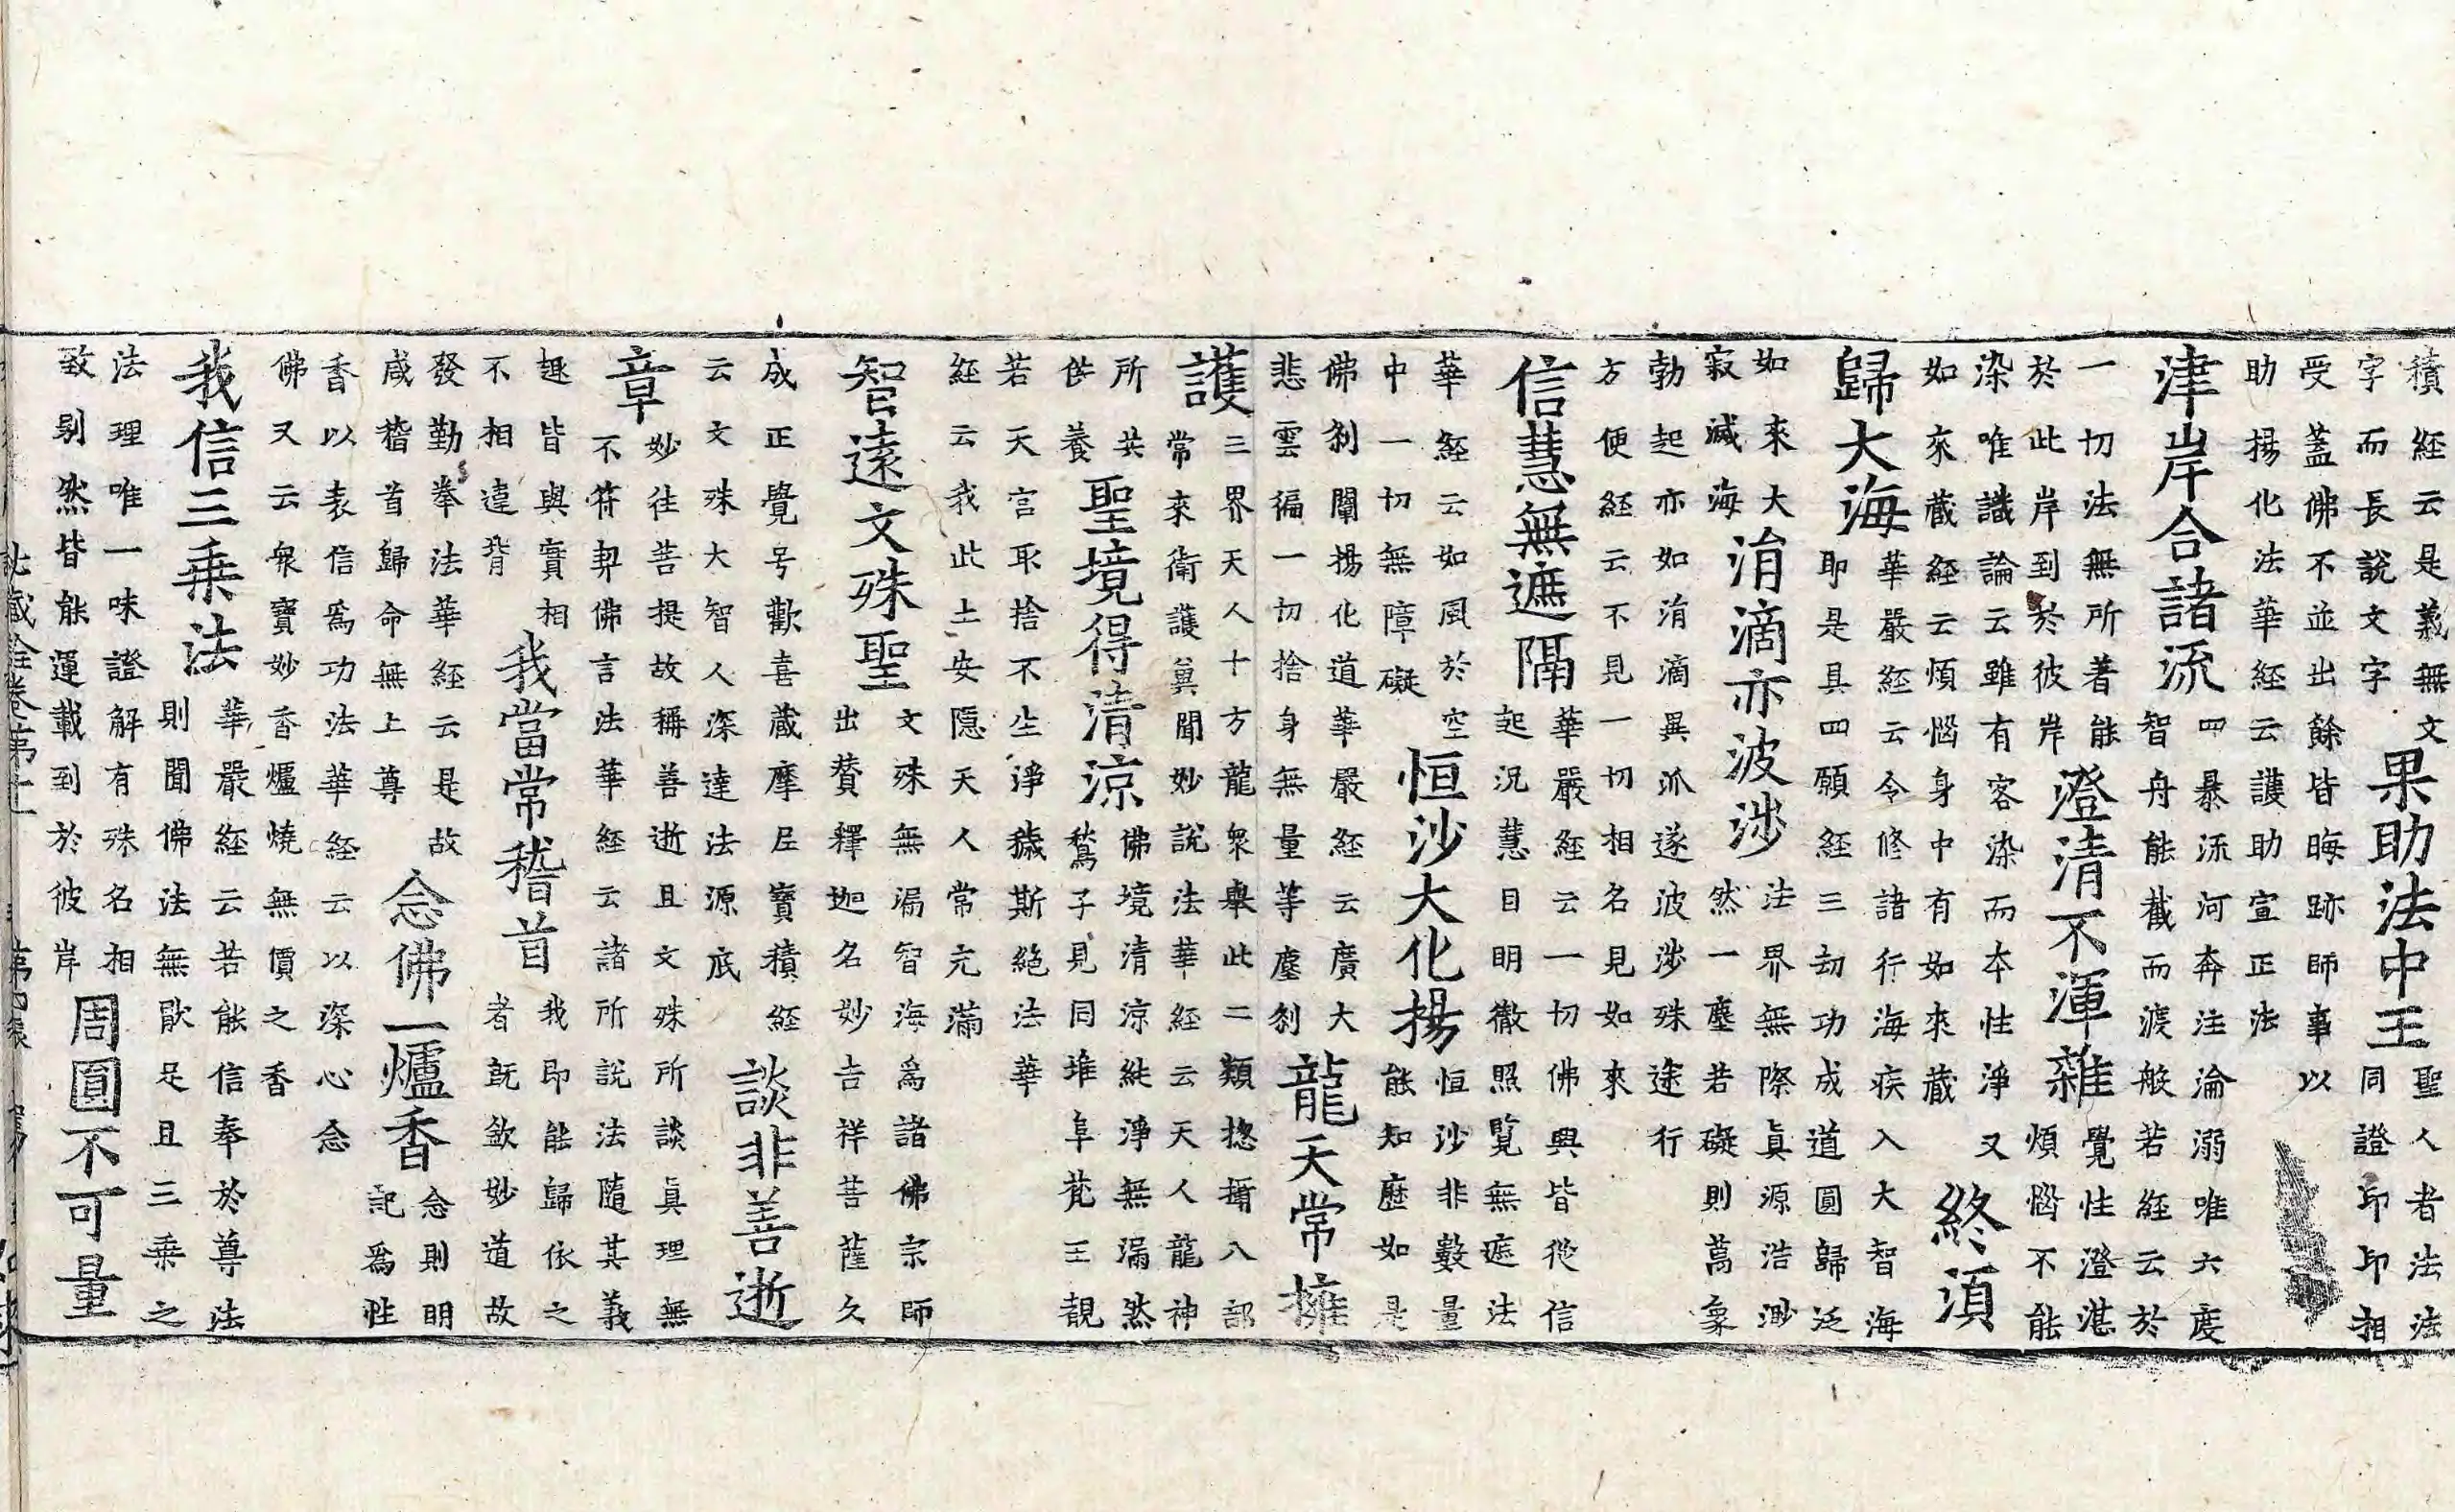 積経云是義無文
字而長說文字
果助法中王
聖人者法法
同證印印相
受蓋佛不並出餘皆晦跡師事以
助揚化法華経云護助宣正法
津岸合諸流
四暴流河奔注淪溺唯六度
智舟能截而渡般若経云於
一切法無所著能
於此岸到於彼岸
澄清不渾雜
覺性澄湛
煩惱不能
染唯識論云雖有客染而本性淨又
如來藏経云煩惱身中有如來藏
終湏
歸大海
華嚴経云令修諸行海疾入大智海
即是具四願経三劫功成道圓歸泛
如來大
寂滅海
涓滴亦波涉
法界無際眞源浩渺
然一塵若礙則萬象
勃起亦如涓滴異派遂波涉殊途行
方便経云不見一切相名見如來
信慧無遮隔
華嚴経云一切佛興皆從信
起況慧目明徹照覽無遮法
華経云如風於空
中一切無障礙
恒沙大化揚
恒沙非數量
能知歷如是
佛刹闡揚化道華嚴経云廣大
悲雲徧一切捨身無量等塵刹
龍天常擁
護
三界天人十方龍衆舉此二類揔攝八部
常來衛護冀聞妙說法華経云天人龍神
所共
供養
聖境得清涼
佛境清涼純淨無漏然
鶖子見同堆阜梵王覩
若天宮取捨不生淨穢斯絶法華
経云我此土安隱天人常充滿
智遠文殊聖
文殊無漏智海爲諸佛宗師
出賛釋迦名妙吉祥菩薩久
成正覺号歡喜藏摩尼寳積経
云文殊大智人深達法源底
談非善逝
章
妙往菩提故稱善逝且文殊所談眞理無
不符契佛言法華経云諸所說法隨其義
趣皆與實相
不相違背
我當常稽首
我即能歸依之
者旣欽妙道故
發勤拳法華経云是故
咸稽首歸命無上尊
念佛一爐香
念則明
記爲性
香以表信爲功法華経云以深心念
佛又云衆寳妙香爐燒無價之香
我信三乗法
華嚴経云若能信奉於尊法
則聞佛法無猒足且三乗之
法理唯一味證解有殊名相
致别然皆能運載到於彼岸
周圓不可量